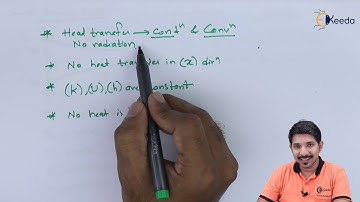 Ekeeda
* Heat transfer → Condⁿ & Convⁿ
No radiation.
* No heat travels in (x) dirⁿ
* (k), (U), (h) are constant
* No heat is